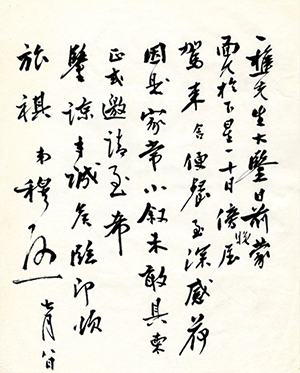 一樵先生大鑒日前蒙
惠允於下星一十日傍晚屈
駕来舍便餐至深感荷
因是家常小叙未敢具柬
正式邀請至希
鑒諒 誠 臨即頌
旅祺 弟穆 七月八日